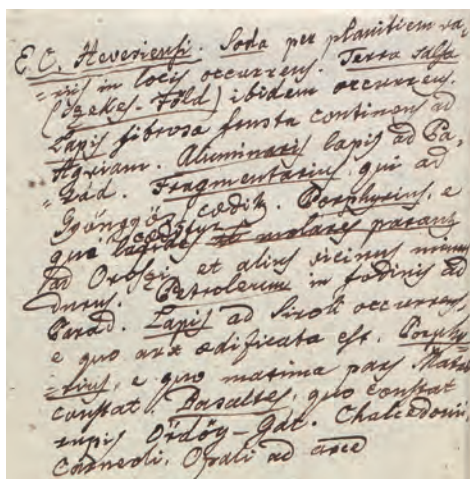 E C. Hevesiensi. Soda per planitiem va,
=riis in locis occurrens. Terra salsa
(Szekes-Föld) ibidem occurrens.
Lapis fibrosa frusta continens ad
Agriam. Aluminaris lapis ad Pa,
=rád. Fragmentarius, qui ad
Gyöngyös cæditur. Porphyrius, e
quo lapides molares parant
ad Oroszi, et alius vicinus minus
durus. Petroleum in fodinis ad
Parad. Lapis ad Sirok occurrens
e quo arx ædificata est. Porphy
=rius, e quo maxima pars Matræ
constat. Basaltes, quo constat
rupis Ördög-Gát. Chalcedonii,
Carneoli, Opali ad arce